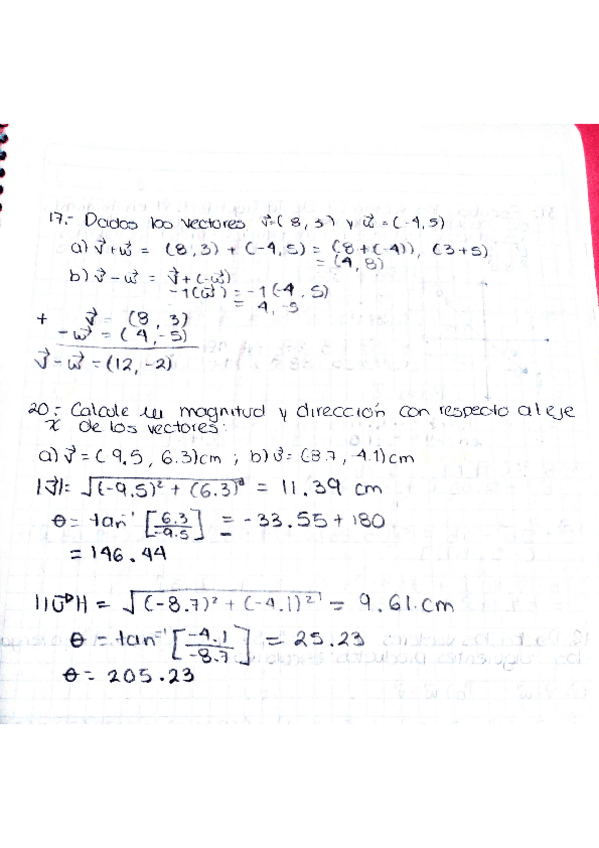 17.- Dados los vectores v⃗=(8,3) y w⃗=(-4,5)
a) v⃗+w⃗ = (8,3) + (-4,5) = (8+(-4)), (3+5)
= (4,8)
b) v⃗-w⃗ = v⃗+(-w⃗)
-1(w⃗) = -1(-4,5)
= 4,-5
+ v⃗ = (8,3)
-w⃗ = (4,-5)
v⃗-w⃗ = (12,-2)
20.- Calcule la magnitud y dirección con respecto al eje
x de los vectores:
a) v⃗ = (9.5, 6.3)cm ; b) v⃗ = (8.7, -4.1)cm
|v⃗|= √(-9.5)² + (6.3)² = 11.39 cm
θ = tan⁻¹ [6.3/-9.5] = -33.55 + 180
= 146.44
||v⃗|| = √(-8.7)² + (-4.1)² = 9.61 cm
θ = tan⁻¹ [-4.1/-8.7] = 25.23
θ = 205.23